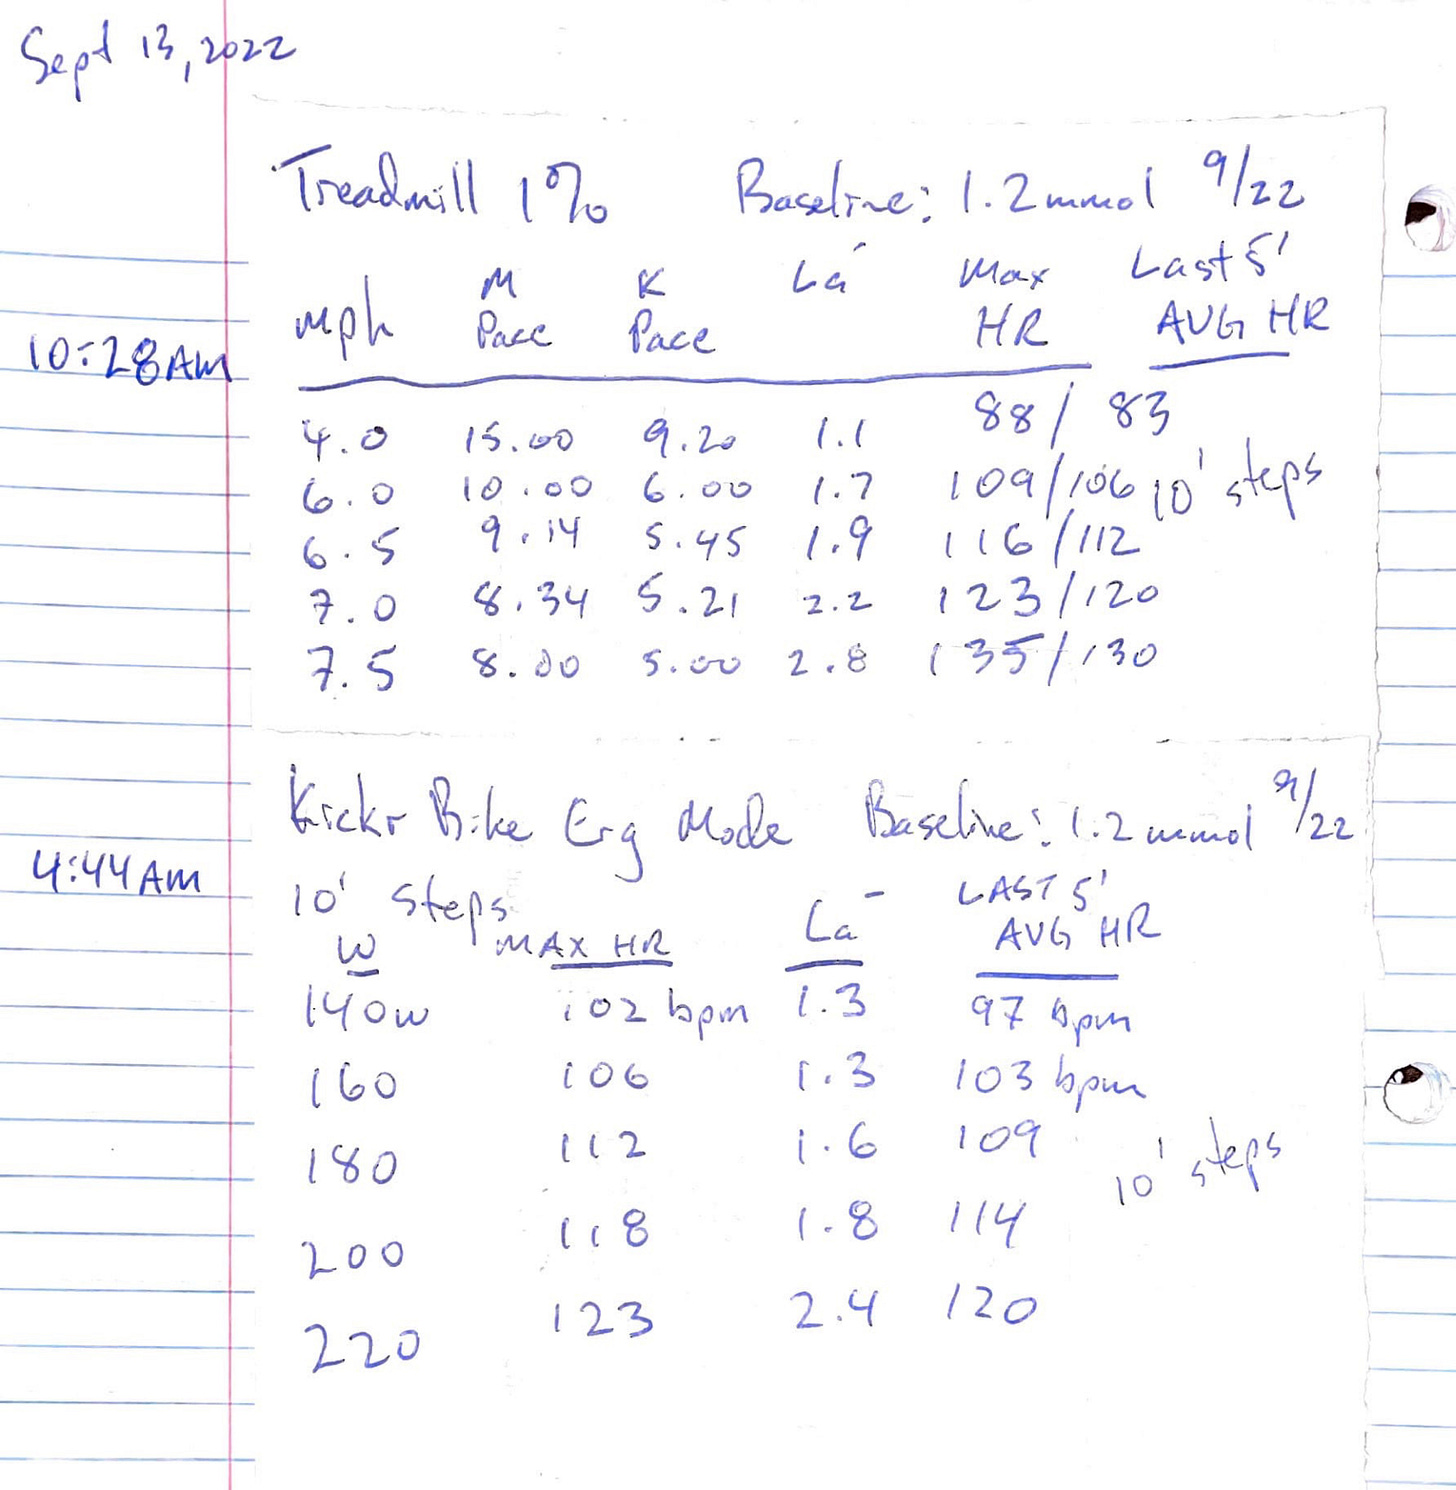 Sept 13, 2022
Treadmill 1% Baseline: 1.2 mmol 9/22
mph M Pace K Pace La⁻ Max HR Last 5' AVG HR
10:28 AM
4.0 15.00 9.20 1.1 88 / 83
6.0 10.00 6.00 1.7 109/106 10' steps
6.5 9.14 5.45 1.9 116/112
7.0 8.34 5.21 2.2 123/120
7.5 8.00 5.00 2.8 135/130
Kickr Bike Erg Mode Baseline: 1.2 mmol 9/22
4:44 AM
10' steps
W MAX HR La⁻ LAST 5' AVG HR
140w 102 bpm 1.3 97 bpm
160 106 1.3 103 bpm
180 112 1.6 109
10' steps
200 118 1.8 114
220 123 2.4 120